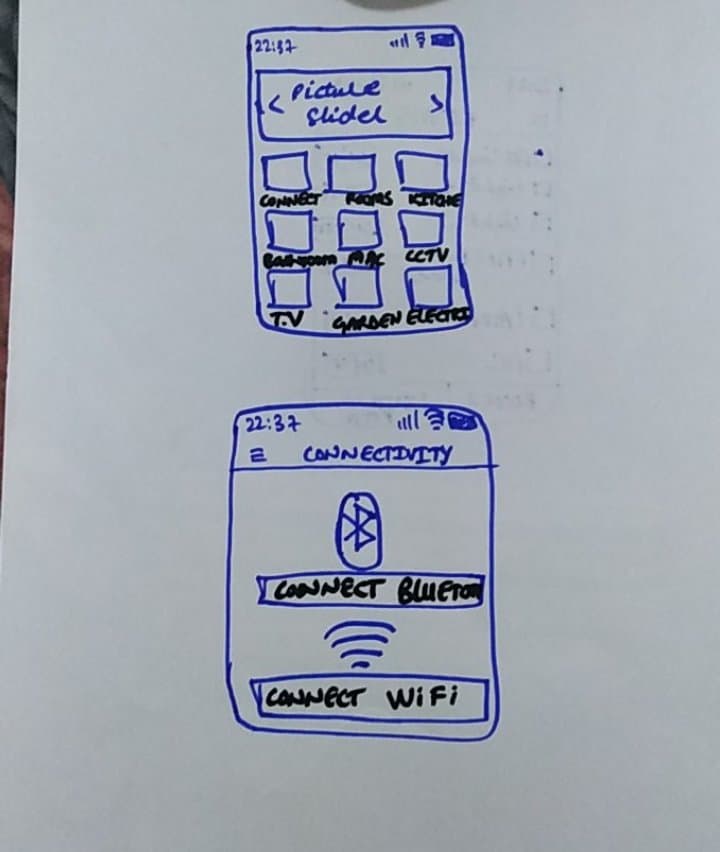 22:37
< Picture >
Slider
CONNECT ROOMS KITCHE
Bathroom MAC CCTV
T.V GARDEN ELECTRI
22:37
CONNECTIVITY
CONNECT BLUETOO
CONNECT WiFi